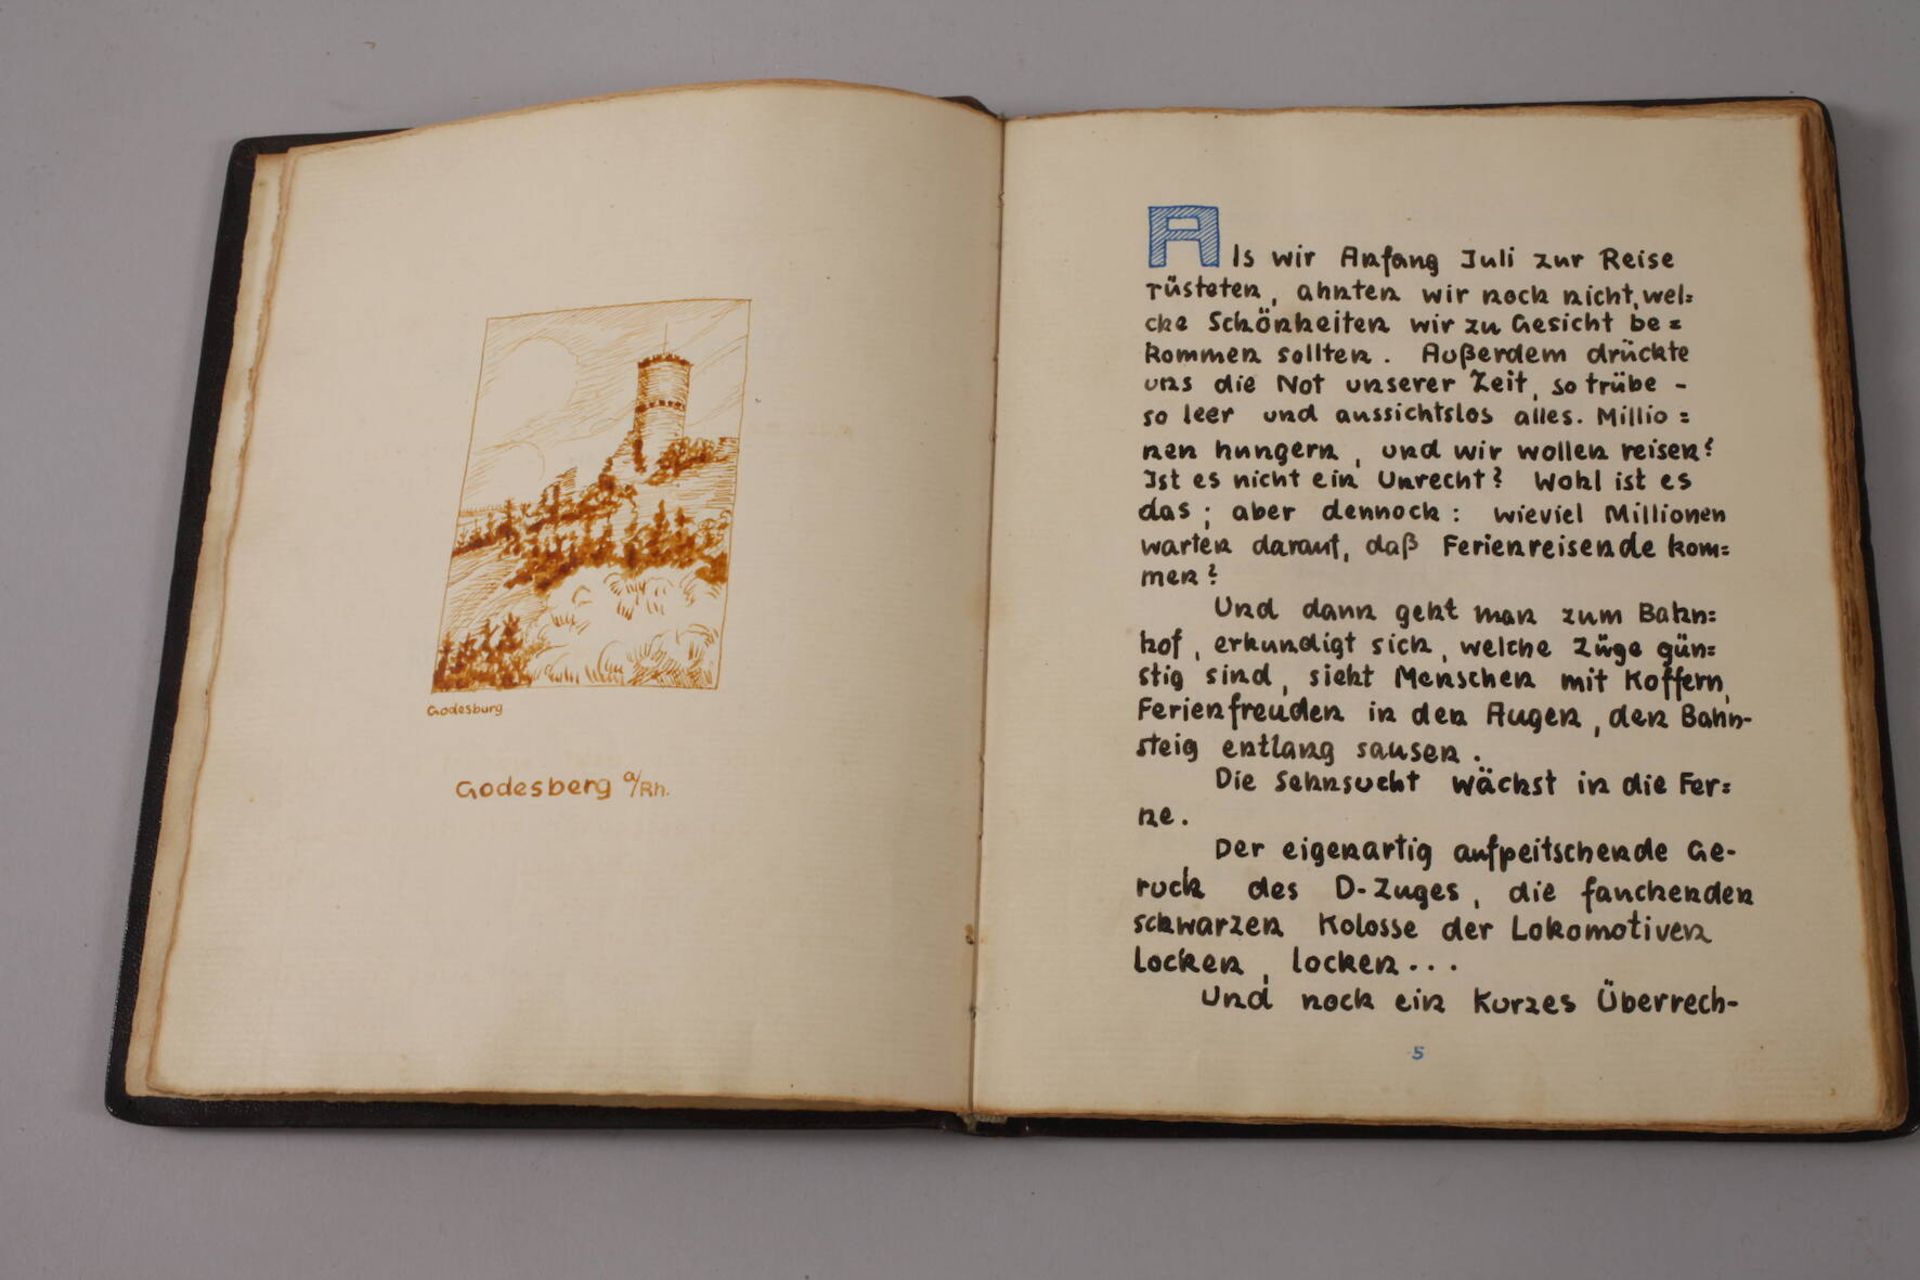 Godesburg
Godesberg a/Rh.
Als wir Anfang Juli zur Reise
rüsteten, ahnten wir noch nicht, wel=
che Schönheiten wir zu Gesicht be=
kommen sollten. Außerdem drückte
uns die Not unserer Zeit, so trübe -
so leer und aussichtslos alles. Millio=
nen hungern, und wir wollen reisen?
Ist es nicht ein Unrecht? Wohl ist es
das; aber dennoch: wieviel Millionen
warten darauf, daß Ferienreisende kom=
men?
Und dann geht man zum Bahn=
hof, erkundigt sich, welche Züge gün=
stig sind, sieht Menschen mit Koffern,
Ferienfreuden in den Augen, den Bahn-
steig entlang sausen.
Die Sehnsucht wächst in die Fer=
ne.
Der eigenartig aufpeitschende Ge-
ruch des D-Zuges, die fauchenden
schwarzen Kolosse der Lokomotiven
locken, locken...
Und noch ein kurzes Überrech-
5